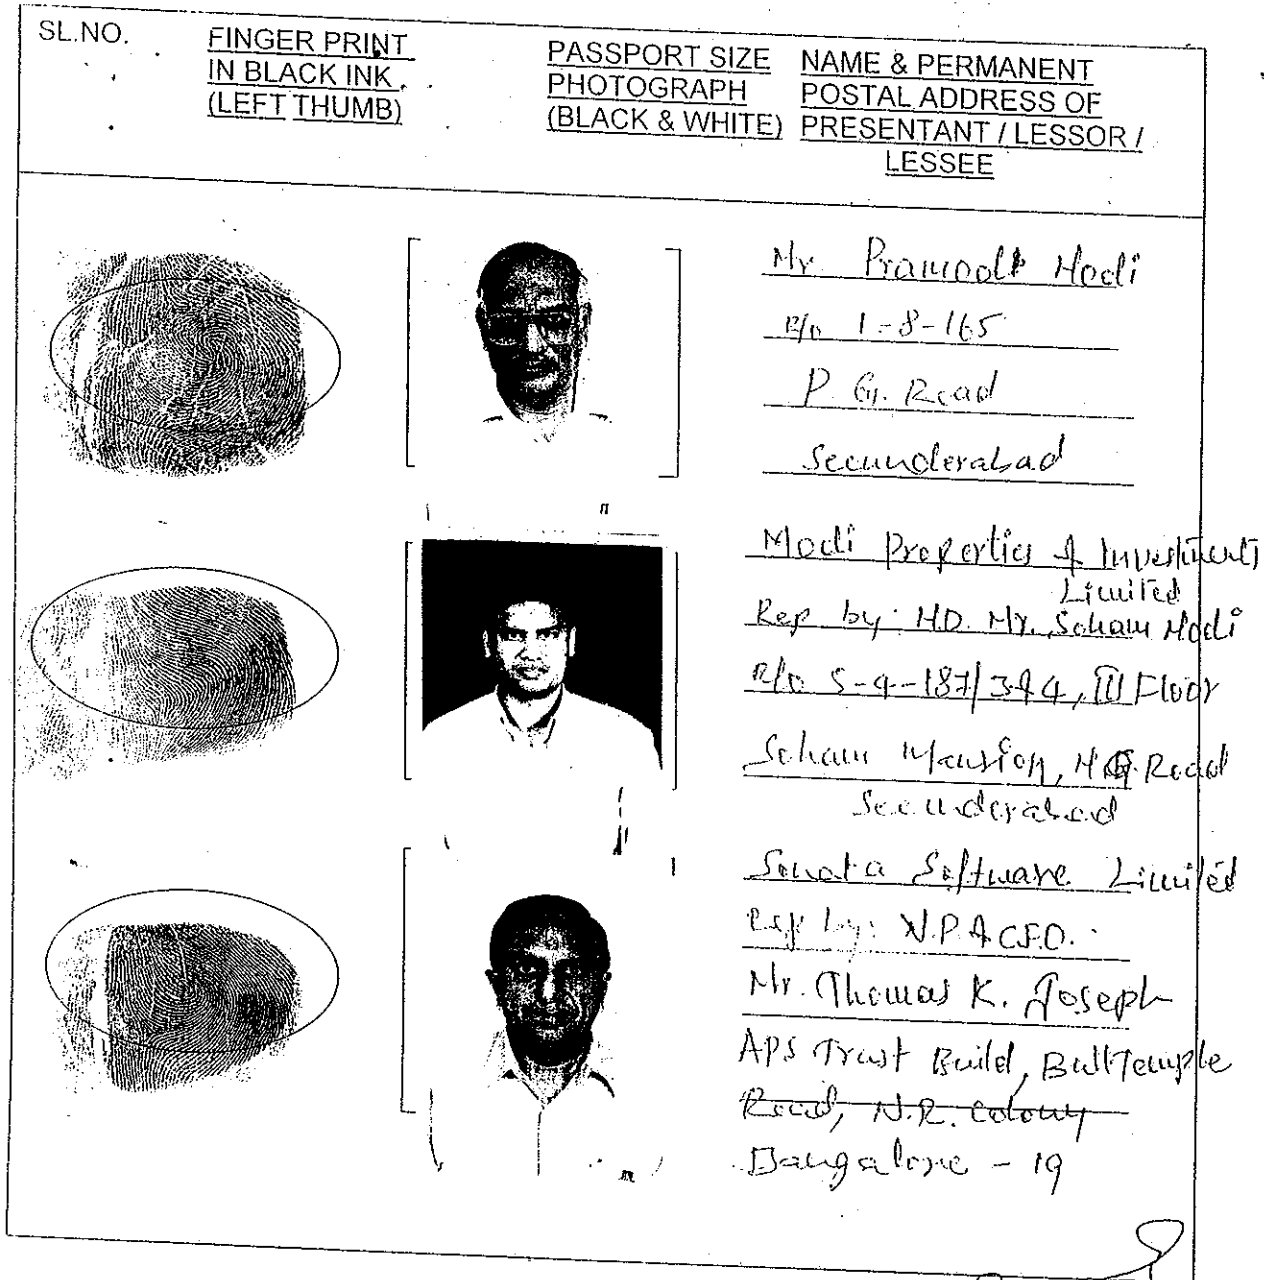 SL.NO.
FINGER PRINT
IN BLACK INK
(LEFT THUMB)
PASSPORT SIZE
PHOTOGRAPH
(BLACK & WHITE)
NAME & PERMANENT
POSTAL ADDRESS OF
PRESENTANT / LESSOR /
LESSEE
Mr Pramodh Modi
R/o 1-8-165
P. G. Road
Secunderabad
Modi Properties & Investments
Limited
Rep by: M.D. Mr. Soham Modi
R/o 5-4-187/3&4, III Floor
Soham Mansion, M.G. Road
Secunderabad
Sonata Software Limited
Rep by: V.P. & C.F.O.
Mr. Thomas K. Joseph
APS Trust Build, Bull Temple
Road, N.R. Colony
Bangalore - 19